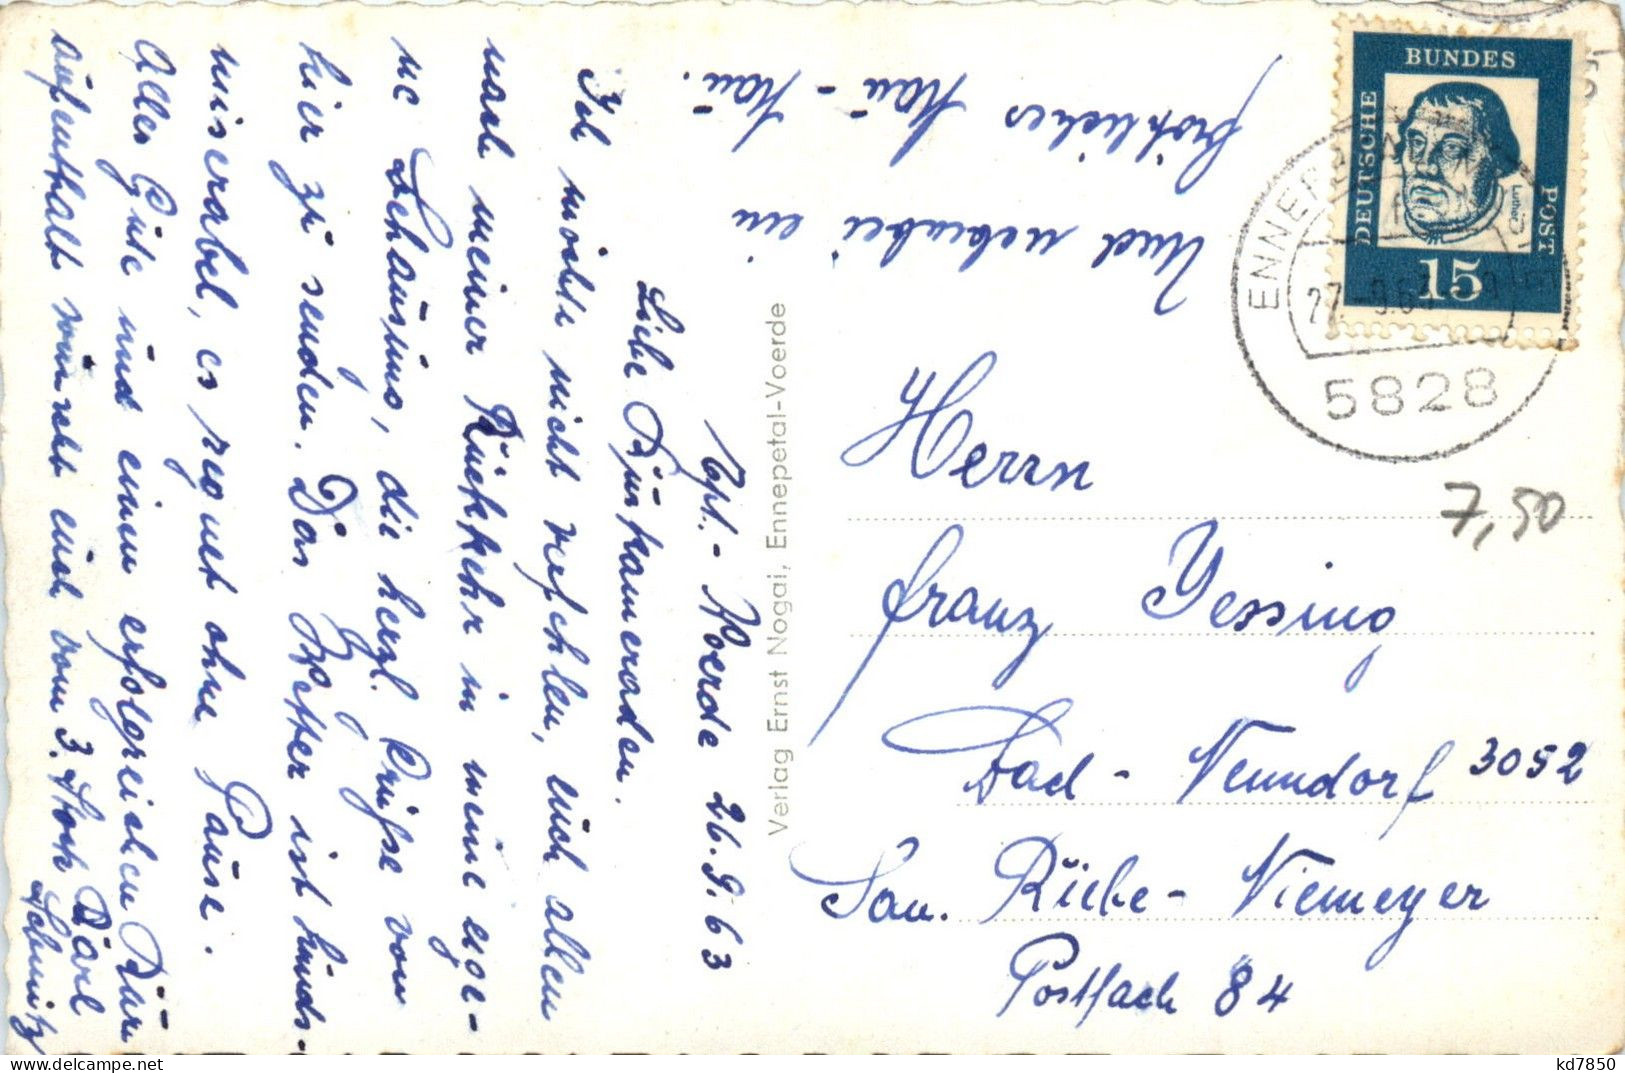 Ept.-Voerde 26.9.63
Liebe Kurkameraden.
Ich möchte nicht verfehlen, euch allen
nach meiner Rückkehr in meine eige-
ne Behausung, die herzl. Grüsse von
hier zu senden. Das Wetter ist hunds-
miserabel, es regnet ohne Pause.
Alles Gute und einen erfolgreichen Kur-
aufenthalt wünscht euch vom 3. Stock Karl
Schmitz
Und nebenbei ein
fröhliches Hau-Hau.
Verlag Ernst Nogai, Ennepetal-Voerde
BUNDES
DEUTSCHE
POST
Luther
15
ENNEPETAL
27.-9.63
5828
7,50
Herrn
Franz Yessing
Bad-Nenndorf 3052
San. Rübe-Niemeyer
Postfach 84
kd7850